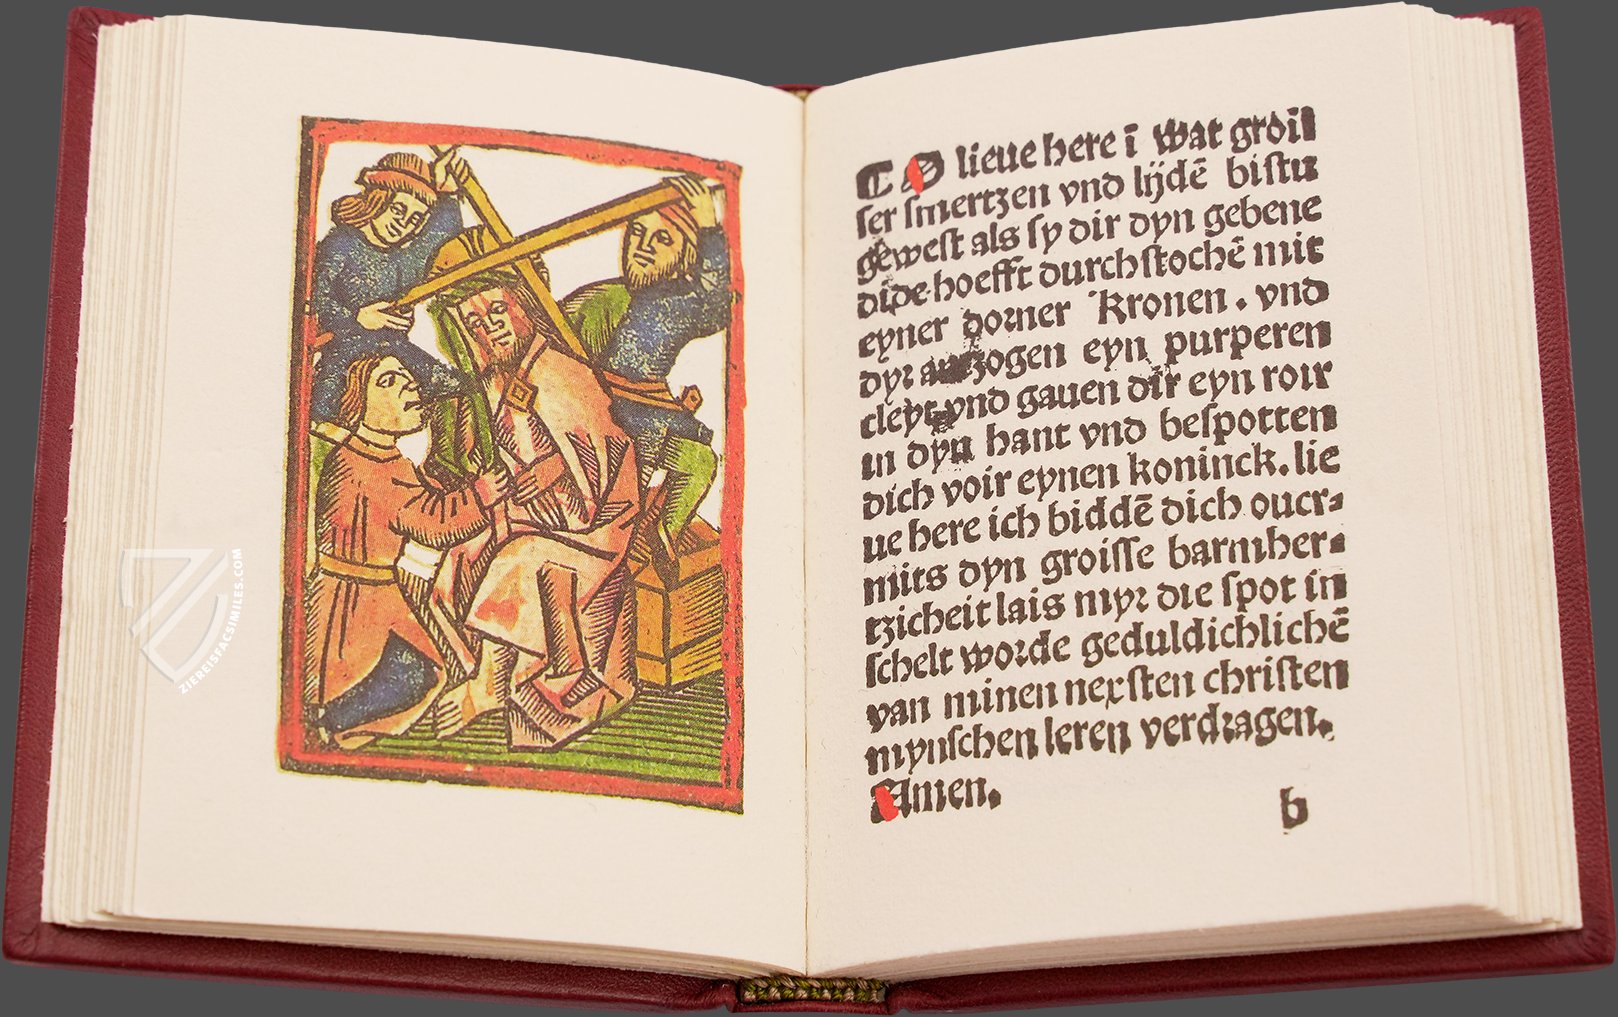 ¶ O lieue here ī wat groiſ
ſer ſmertzen vnd lijdē biſtu
geweſt als ſy dir dyn gebene
dide hoefft durchſtochē mit
eyner dorner kronen. vnd
dyr antzogen eyn purperen
cleyt vnd gauen dir eyn roir
in dyn hant vnd beſpotten
dich voir eynen koninck. lie
ue here ich biddē dich ouer⸗
mits dyn groiſſe barmher⸗
tzicheit lais myr die ſpot in
ſchelt worde geduldichlichē
van minen nexſten chriſten
mynſchen leren verdragen.
Amen.
b
ZIEREISFACSIMILES.COM